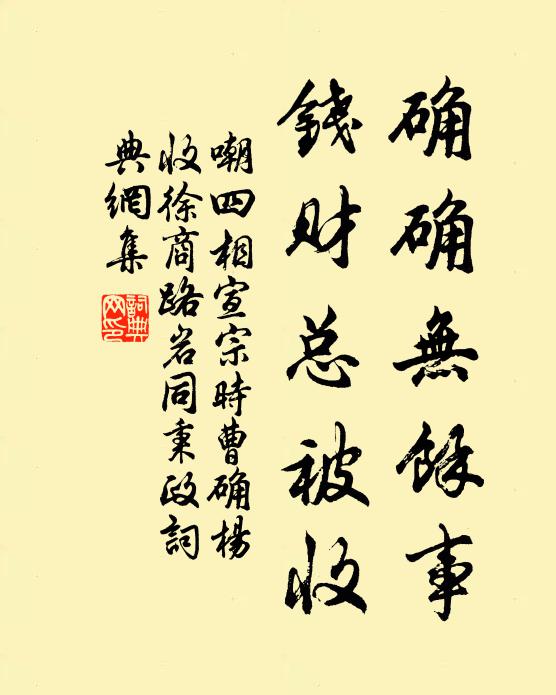 确确無餘事
錢财总被收
嘲四相宣宗時曹确楊
收徐商路岩同秉政詞
典網集
詞典
网印